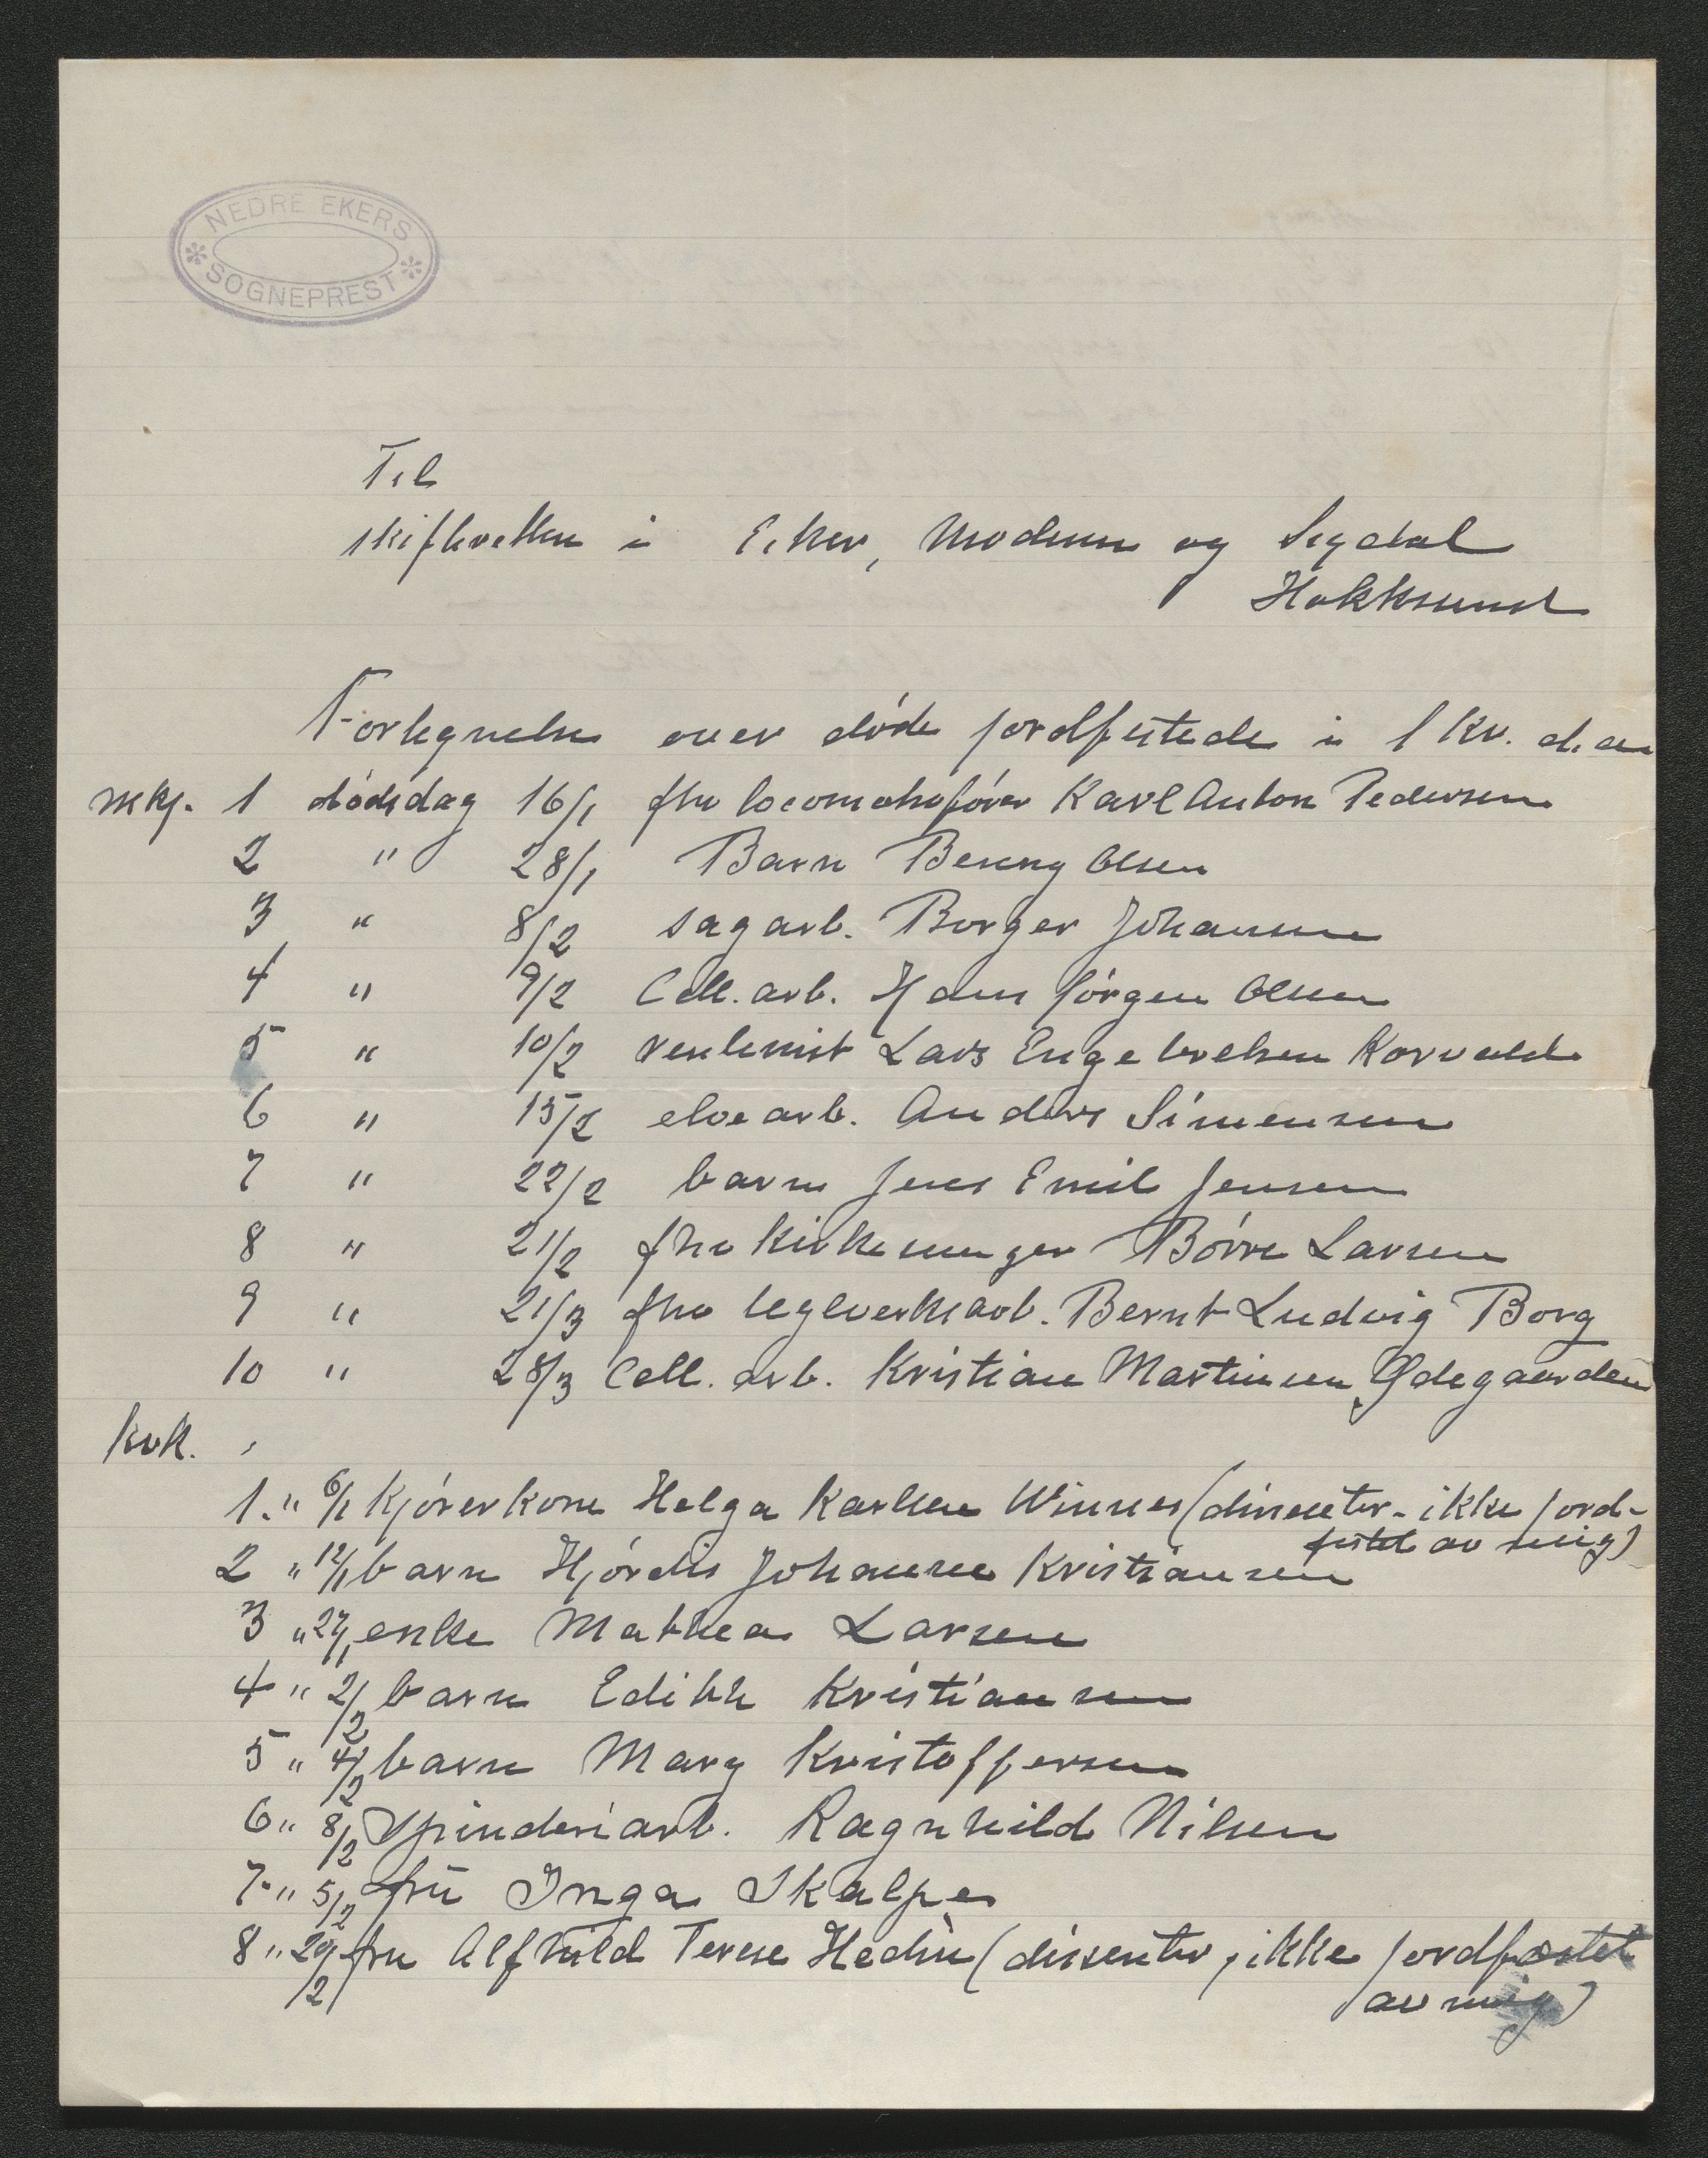 NEDRE EKERS
SOGNEPREST
Til
skifteretten i Eiker, Modum og Sigdal
Hokksund
Fortegnelse over døde jordfestede i 1 kv. d. aar
mkj. 1 dødsdag 16/1 fhv locomotivfører Karl Anton Pedersen
2 " 28/1 Barn Benny Olsen
3 " 8/2 sagarb. Borger Johansen
4 " 9/2 Cell. arb. Hans Jörgen Olsen
5 " 10/2 rentenist Lars Engebretsen Korvald
6 " 15/2 elvearb. Anders Simensen
7 " 22/2 barn Jens Emil Jensen
8 " 21/2 fhv kirkesanger Börre Larsen
9 " 21/3 fhv teglverksarb. Bernt Ludvig Borg
10 " 28/3 Cell. arb. Kristian Martinsen Ødegaarden
kvk.
1. " 6/1 Kjörerkone Helga Karlsen Winnes (dissenter - ikke jord-
festet av mig)
2 " 12/1 barn Hjördis Johanne Kristiansen
3 " 27/1 enke Mathea Larsen
4 " 2/2 barn Edith Kristiansen
5 " 4/2 barn Mary Kristoffersen
6 " 8/2 Spinderiarb. Ragnhild Nilsen
7 " 5/2 frū Inga Skalpe
8 " 20/2 fru Alfhild Terese Hedin (dissenter, ikke jordfæstet
av mig)